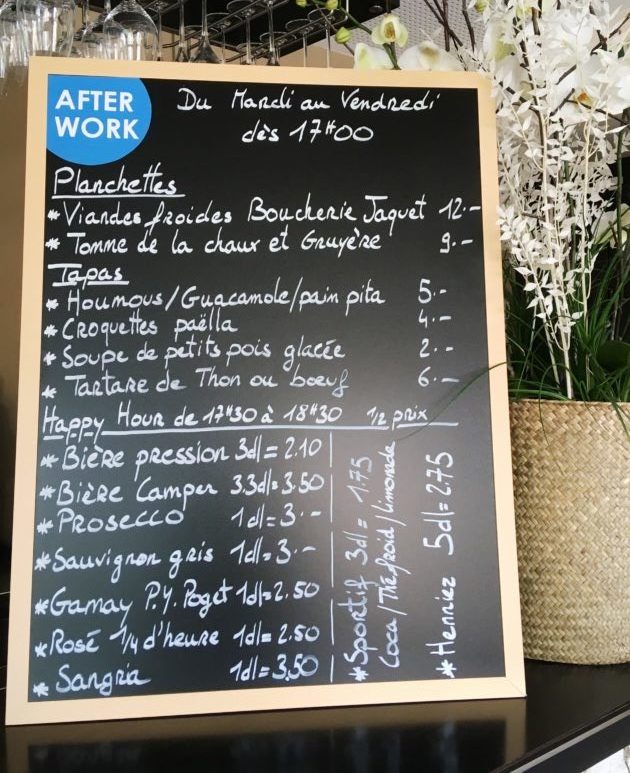 AFTER
WORK
Du Mardi au Vendredi
dès 17H00
Planchettes
* Viandes froides Boucherie Jaquet 12.-
* Tomme de la chaux et Gruyère 9.-
Tapas
* Houmous/Guacamole/pain pita 5.-
* Croquettes paëlla 4.-
* Soupe de petits pois glacée 2.-
* Tartare de Thon ou bœuf 6.-
Happy Hour de 17H30 à 18H30 1/2 prix
* Bière pression 3dl = 2.10
* Bière Camper 33dl = 3.50
* Prosecco 1dl = 3.-
* Sauvignon gris 1dl = 3.-
* Gamay P.Y. Poget 1dl = 2.50
* Rosé 1/4 d'heure 1dl = 2.50
* Sangria 1dl = 3.50
* Sportif 3dl = 1.75
Coca/Thé froid/Limonade
* Henniez 5dl = 2.75